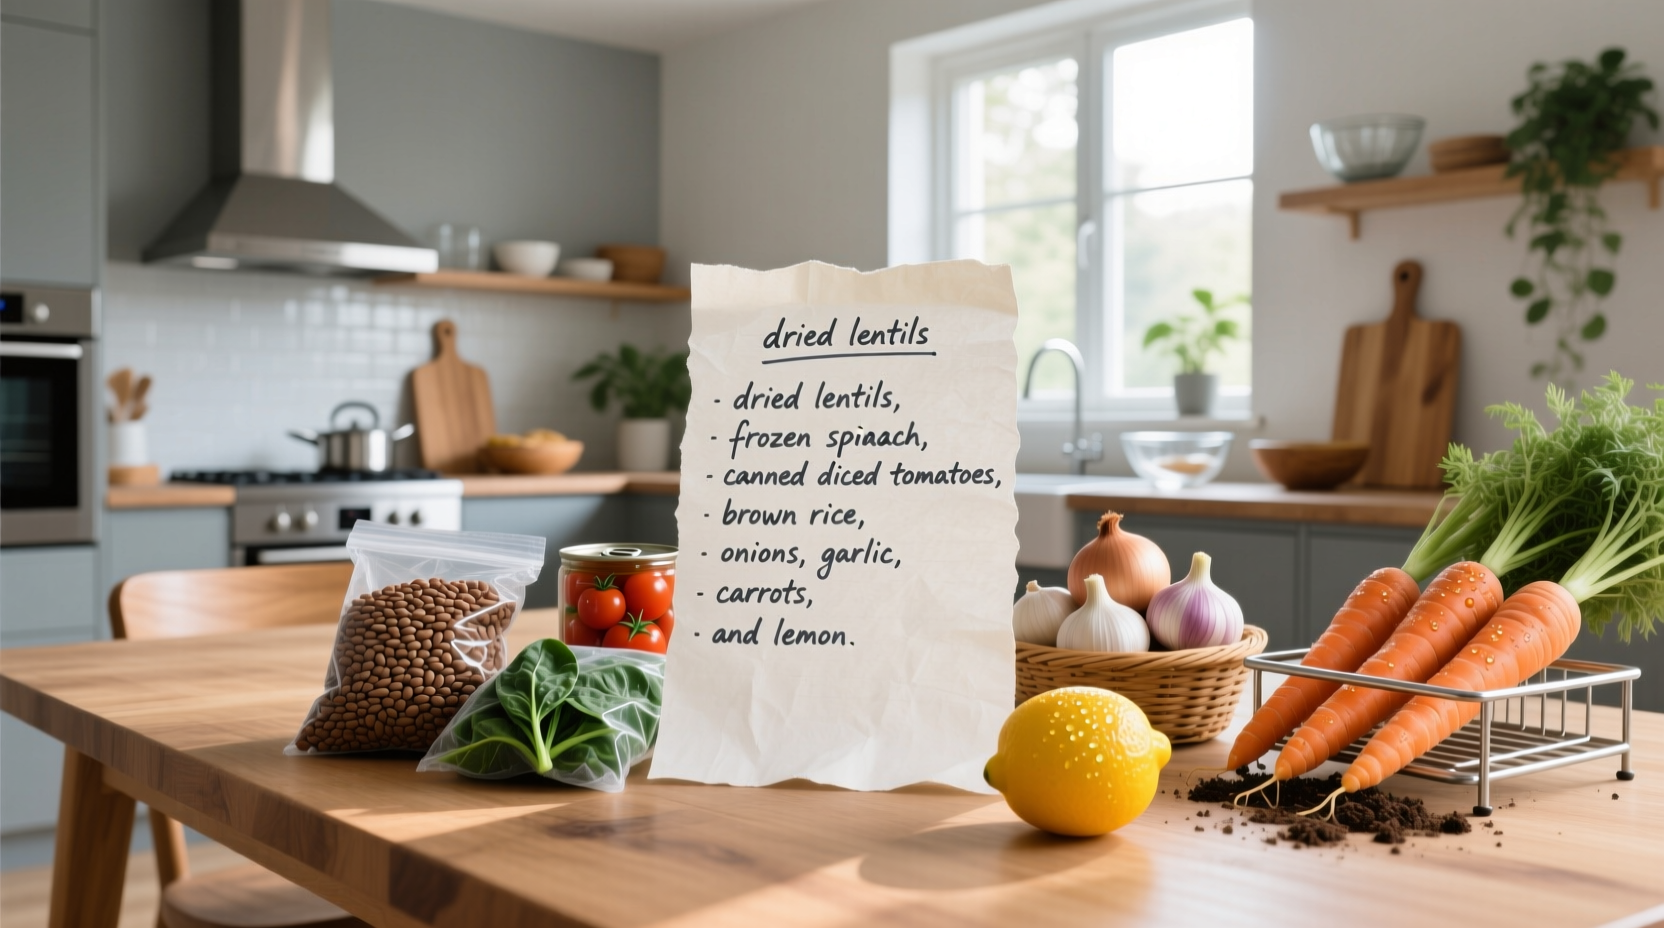 dried lentils
- dried lentils,
- frozen spiaach,
- canned diced tomatoes,
- brown rice,
- onions, garlic,
- carrots,
- and lemon.